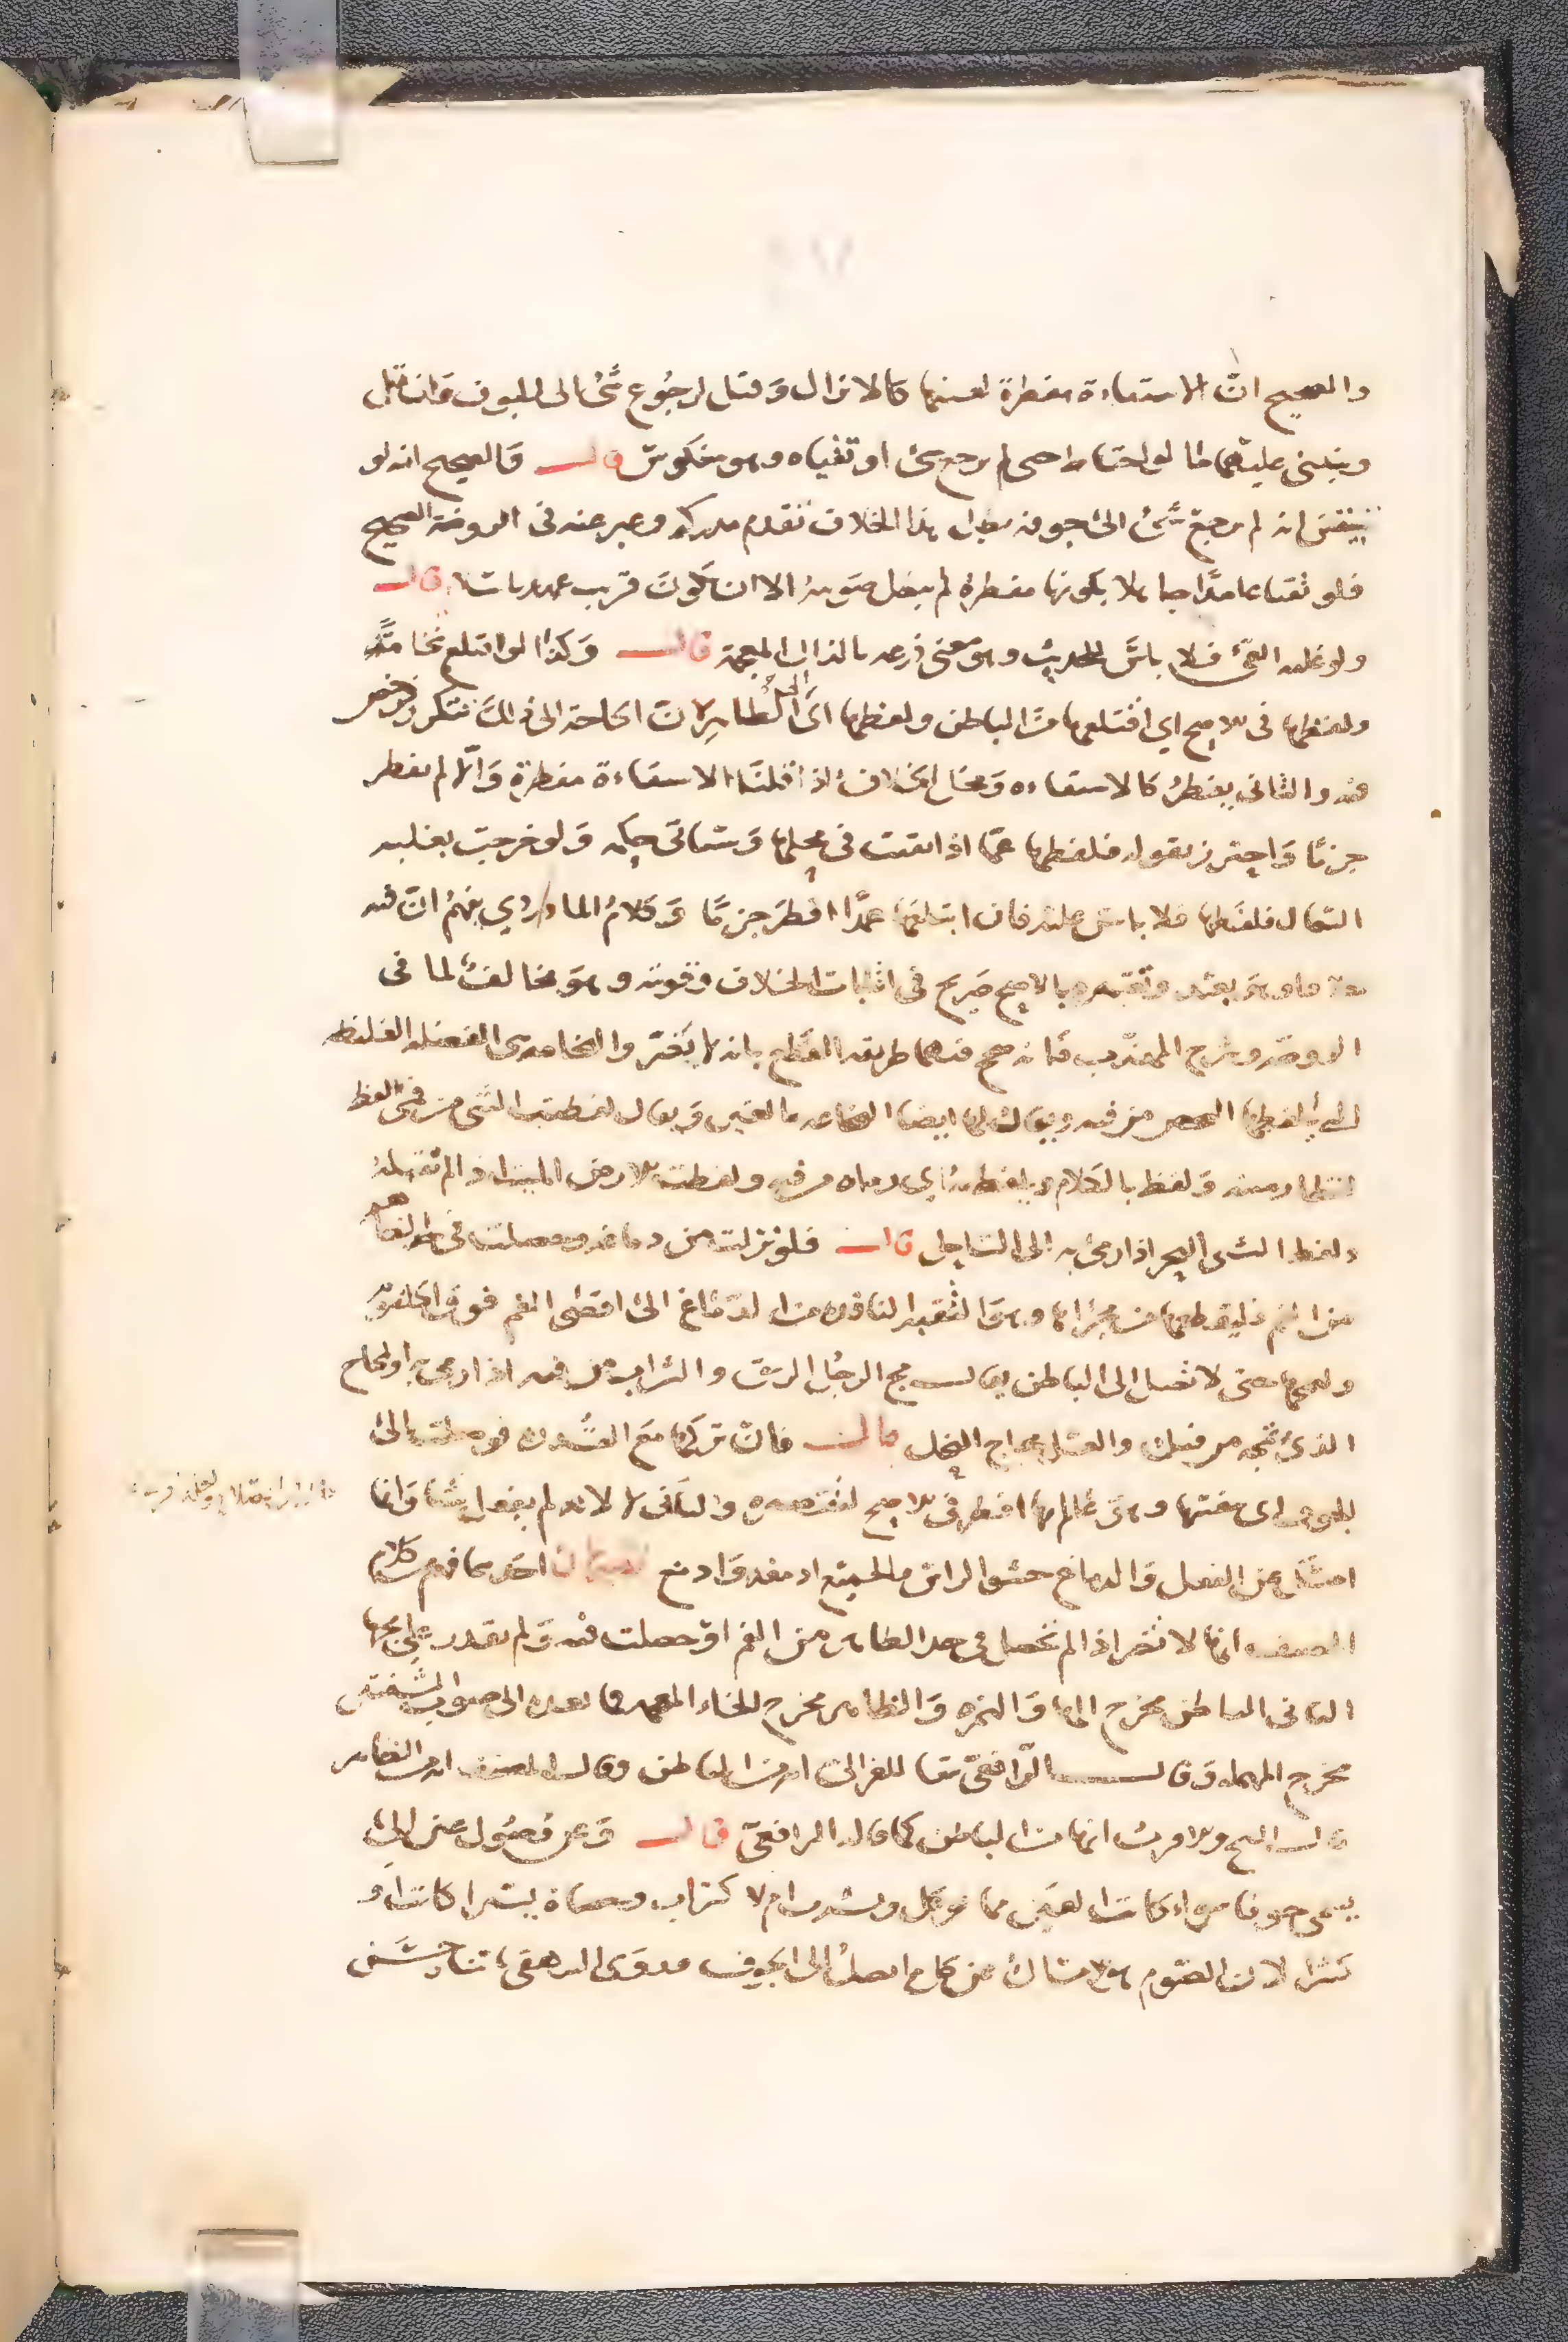 والصحيح ان الاستقاءة مفطرة لعينها كالانزال وقيل لرجوع شئ الى الجوف وان قل
وينبني عليهما ما لو احتاط حتى لم يرجع شئ او تقياه وهو منكوس قال والصحيح انه لو
تيقن انه لم يرجع شئ الى جوفه بطل هذا الخلاف تقدم مدركه وعبر عنه في الروضة الصحيح
فلو تقيا عامدا جاهلا بكونها مفطرة لم يبطل صومه الا ان يكون قريب عهد باسلام قال
ولو غلبه القئ فلا باس للحديث وهو معنى ذرعه بالذال المعجمة قال وكذا لو اقتلع نخامة
ولفظها في الاصح اي اقتلعها من الباطن ولفظها اى الى الظاهر لان الحاجة الى ذلك تتكرر فرخص
فيه والثاني يفطر كالاستقاءه ومحل الخلاف اذا قلنا الاستقاءة مفطرة والا لم يفطر
جزما واحترز بقوله فلفظها عما اذا بقيت في محلها وسياتى حكمه ولو خرجت بغلبة
السعال فلفظها فلا باس عليه فان ابتلعها عمدا افطر جزما وكلام الماوردي يفهم ان فيه
وتعبيره بالاصح صريح في اثبات الخلاف وقوته وهو مخالف لما فى
الروضه وشرح المهذب فانه صحح فيهما طريقه القطع بانه لا يضر والنخامه هى الفضله الغليظه
التي يلفظها الشخص من فيه ويقال لها ايضا النخاعه بالعين ويقال لفظت الشئ من فى الفظ
لفظا رميته ولفظ بالكلام وتلفظ به اي رماه من فيه ولفظت الارض الميت اذا لم تقبله
ولفظ الشى البحر اذا رمى به الى الساحل قال فلو نزلت من دماغه وحصلت في حد الظاهر
من الفم فليقطعها من مجراها وهو الثقبه النافذه من الدماغ الى اقصى الفم فوق الحلقوم
وليمجها حتى لا تصل الى الباطن يقال مج الرجل الريق والشراب من فيه اذا رمى به والمجاج
الذى تمجه من فيك والعسل مجاج النحل قال فان تركها مع القدره فوصلت الى
الجوف اى هيئتها وهو عالم بها افطر في الاصح لتقصيره والثانى لا لانه لم يفعل شيئا وانما
امسك عن الفعل والدماغ حشو الراس والجمع ادمغه وادمغ تنبيهان احدهما فهم كلام
المصنف انها لا تضر اذا لم تحصل في حد الظاهر من الفم او حصلت فيه ولم يقدر على مجها
الثانى الباطن مخرج الهاء والهمزه والظاهر مخرج الخاء المعجمه وما بعده الى صوب الشفتين
مخرج المهمله وقال الرافعى تبعا للغزالى انه من الباطن وقال المصنف انه من الظاهر
قال الشيخ والاقرب انها من الباطن كما قاله الرافعى قال وعن وصول عين الى ما
يسمى جوفا سواء كانت العين مما يؤكل ويشرب ام لا كتراب وحصاة يسيرا كانت او
كثيرا لان الصوم هو الامساك عن كل ما يصل الى الجوف وروى البيهقى باسناد حسن